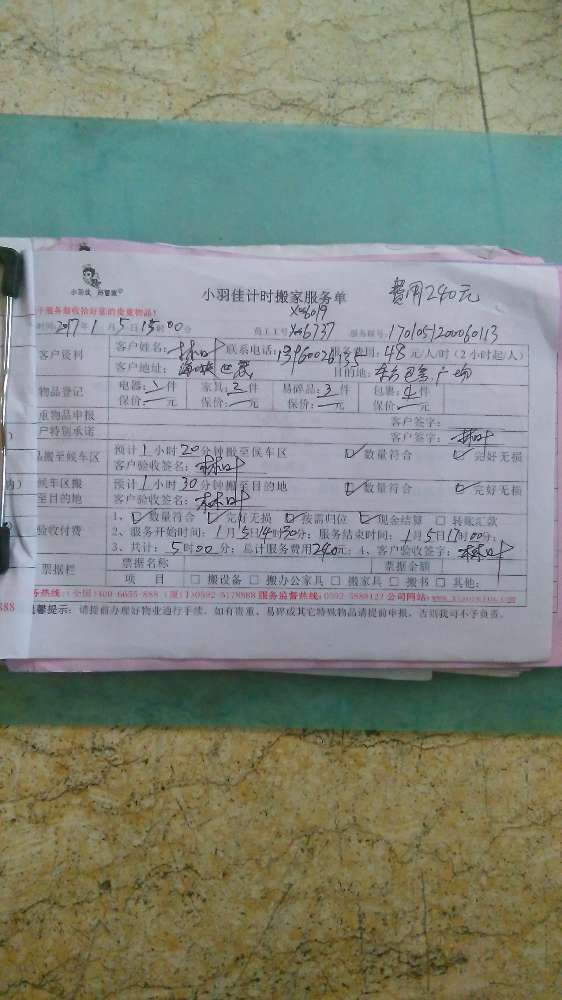 小羽佳 好管家
小羽佳计时搬家服务单
费用240元
Xm6019
时间:2017年1月5日15时00分 员工工号Xm6737 服务编号:170105120060113
客户资料 客户姓名:林叶 联系电话: 服务费用:48元/人/时(2小时起/人)
客户地址: 目的地: 广场
物品登记 电器:2件 家具:2件 易碎品:3件 包裹:4件
保价:元 保价:元 保价:元 保价:元
重物品申报 客户签字:
户特别承诺 客户签字:林叶
品搬至候车区 预计1小时20分钟搬至侯车区 数量符合 完好无损
客户验收签名:林叶
候车区搬 预计1小时30分钟搬至目的地 数量符合 完好无损
至目的地 客户验收签名:林叶
1、数量符合 完好无损 按需归位 现金结算 转账汇款
验收付费 2、服务开始时间:1月5日14时30分;服务结束时间:1月5日17时00分;
3、共计:5时00分;总计服务费用240元;4、客户验收签字:林叶
票据栏 票据名称 票据金额
项 目 搬设备 搬办公家具 搬家具 搬书 其他:
务热线:(全国)400-6655-888 (厦门)0592-5178888 服务监督热线: 公司网站:
温馨提示:请提前办理好物业通行手续。如有贵重、易碎或其它特殊物品请提前申报,否则我司不予负责。